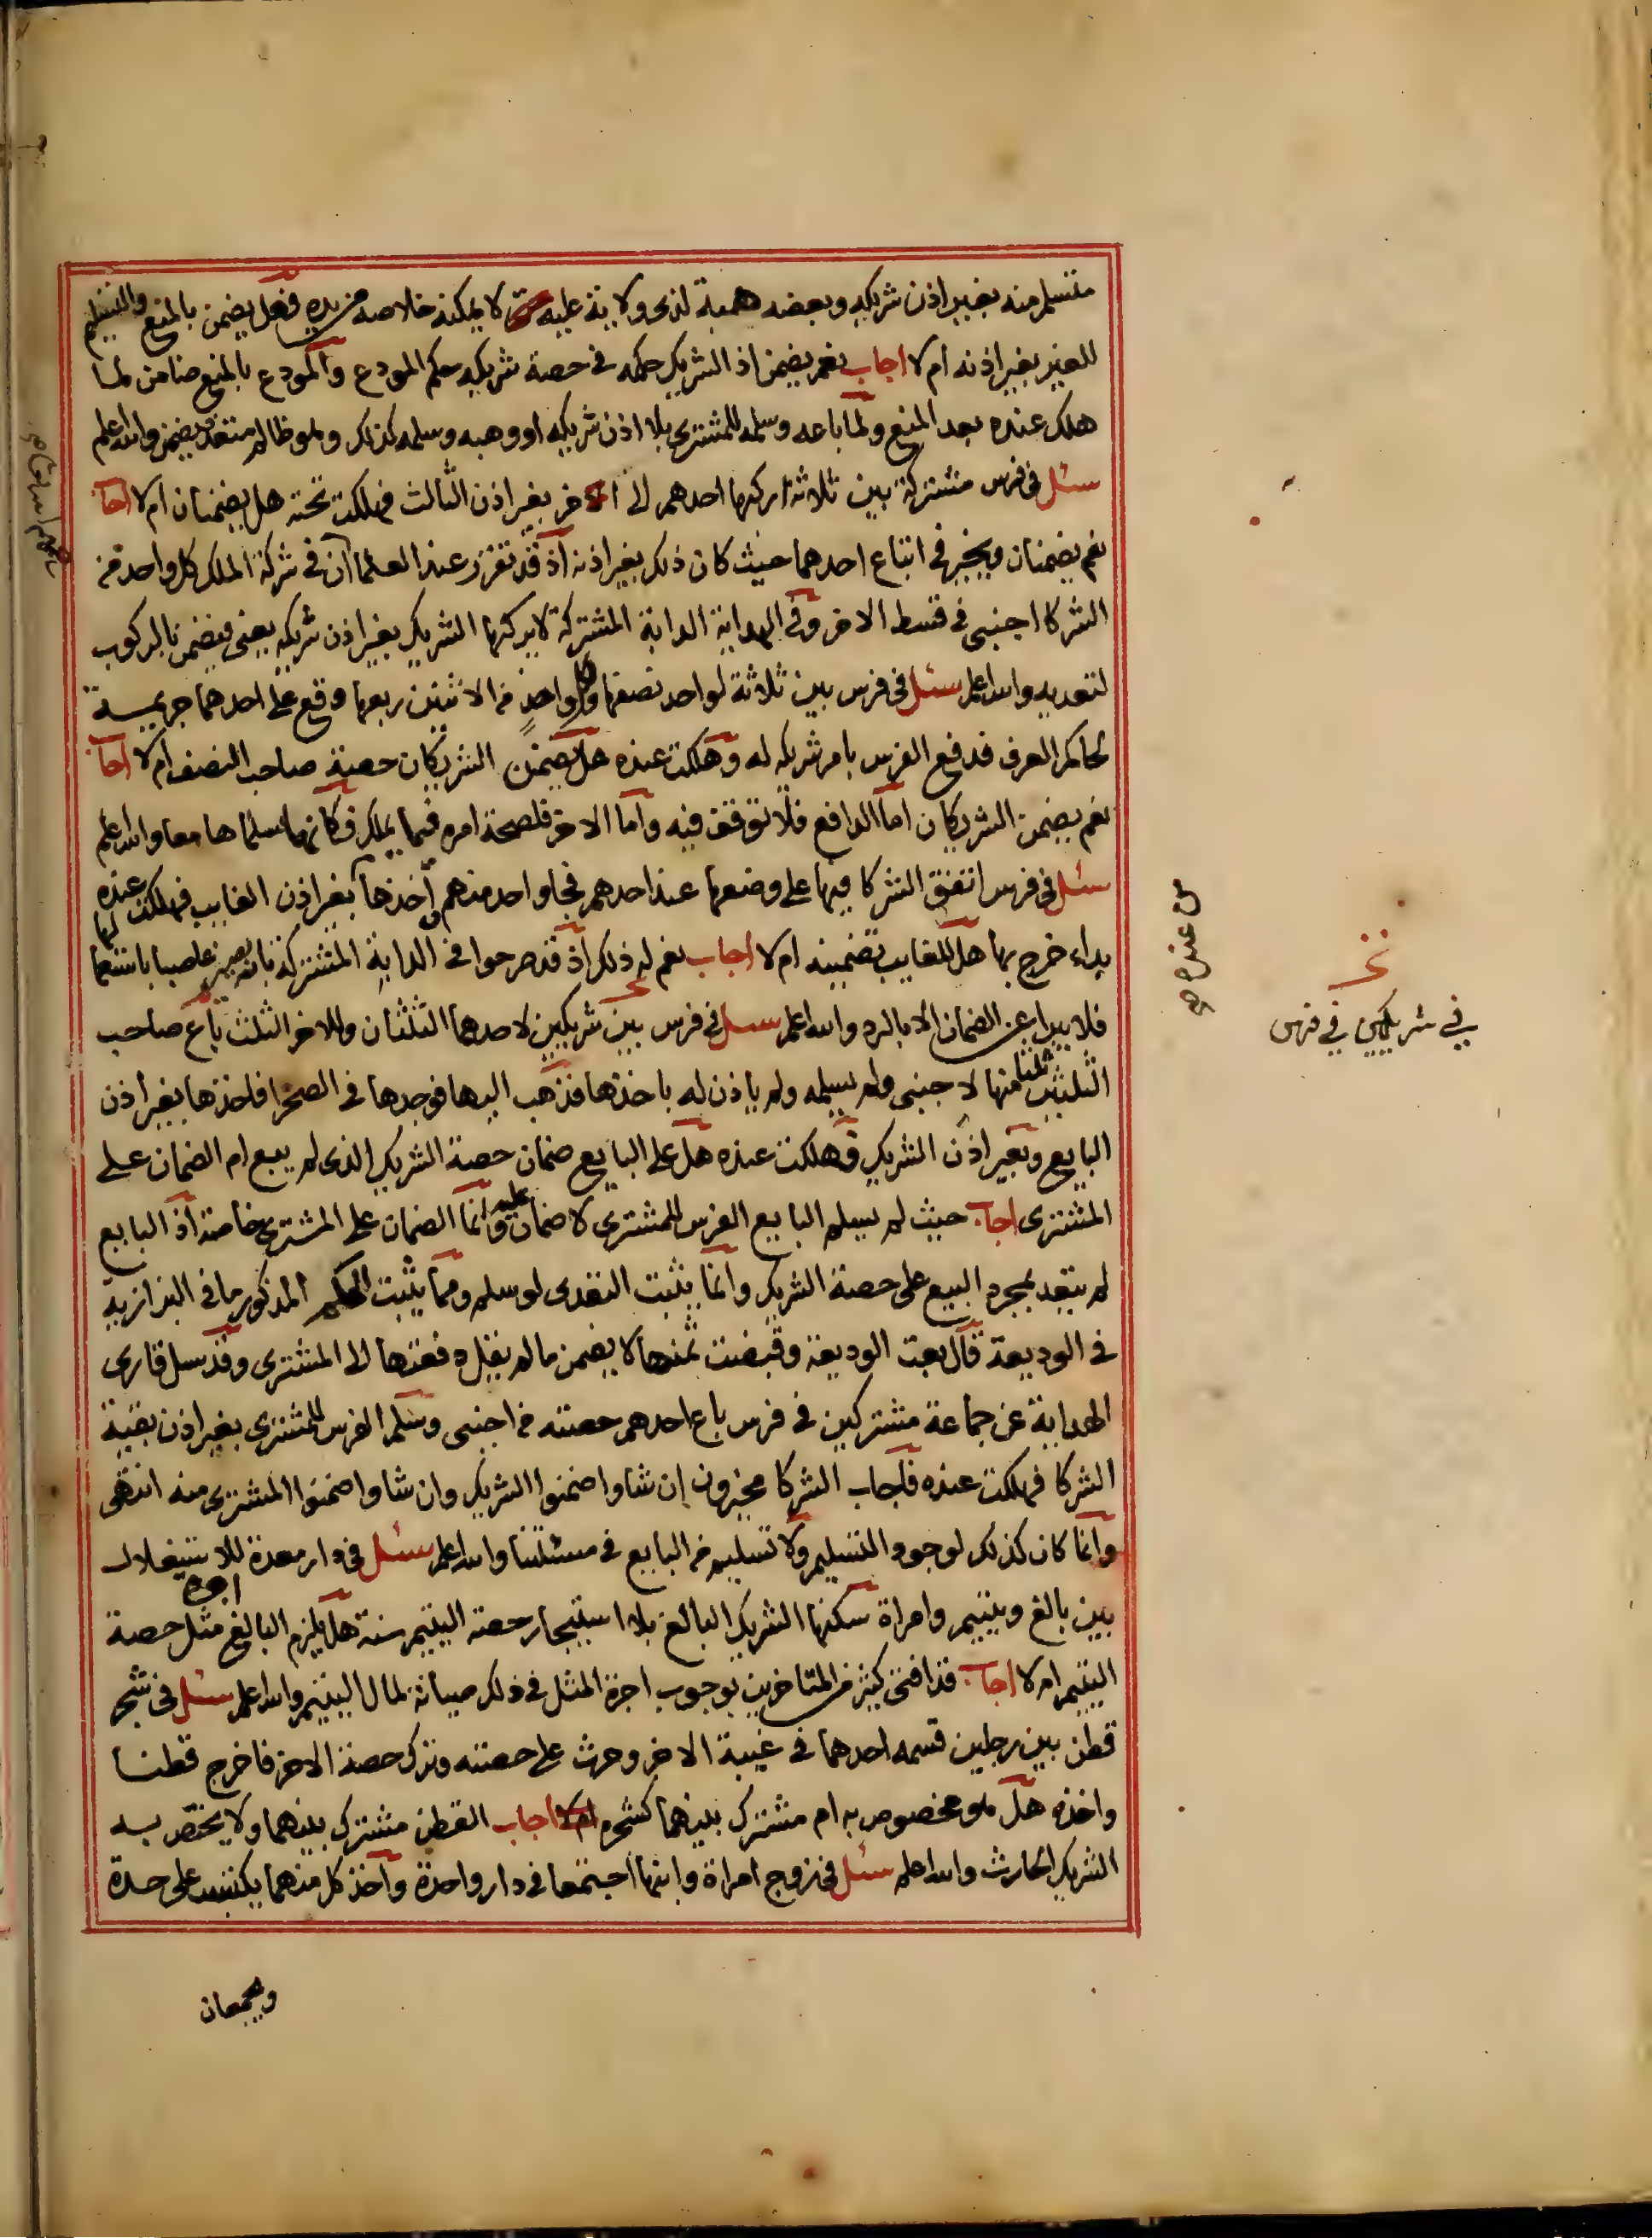 متسلم منه بغير اذن شريكه وبعضه هبة لذى ولاية عليه لا يمكنه خلاصه من يده فهل يضمن بالمنع والتسليم
للغير بغير اذنه ام لا اجاب نعم يضمن اذ الشريك حكمه فى حصة شريكه حكم المودع والمودع بالمنع ضامن لما
هلك عنده بعد المنع ولما باعه وسلمه للمشترى بلا اذن شريكه او وهبه وسلمه كذلك وهو ظالم متعد فيضمن والله اعلم
سئل فى فرس مشتركة بين ثلاثة اركبها احدهم الى الاخر بغير اذن الثالث فهلكت تحته هل يضمنان ام لا اجاب
نعم يضمنان ويخير فى اتباع احدهما حيث كان ذلك بغير اذنه اذ قد تقرر عند العلما ان فى شركة الملك كل واحد من
الشركا اجنبى فى قسط الاخر وفى الهداية الدابة المشتركة لا يركبها الشريك بغير اذن شريكه يعنى فيضمن بالركوب
لتعديه والله اعلم سئل فى فرس بين ثلاثة لواحد نصفها ولكل واحد من الاثنين ربعها وقع على احدهما جريمة
لحاكم العرف فدفع الفرس بامر شريكه له وهلكت عنده هل يضمن الشريكان حصة صاحب النصف ام لا اجاب
نعم يضمن الشريكان اما الدافع فلا توقف فيه واما الاخر فلصحة امره فيما يملك فكانهما سلماها معا والله اعلم
سئل فى فرس اتفق الشركا فيها على وضعها عند احدهم فجا واحد منهم واخذها بغير اذن الغايب فهلكت عنده
بداء خرج بها هل للغايب تضمينه ام لا اجاب نعم له ذلك اذ قد صرحوا فى الدابة المشتركة بانه يصير غاصبا باستعمالها
فلا يبرا عن الضمان الا بالرد والله اعلم سئل فى فرس بين شريكين لاحدهما الثلثان وللاخر الثلث باع صاحب
الثلثين ثلثا منها لاجنبى ولم يسلمه ولم ياذن له باخذها فذهب اليها فوجدها فى الصحرا فاخذها بغير اذن
البايع وبغير اذن الشريك وهلكت عنده هل على البايع ضمان حصة الشريك الذى لم يبع ام الضمان على
المشترى اجاب حيث لم يسلم البايع الفرس للمشترى لا ضمان عليه وانما الضمان على المشترى خاصة اذ البايع
لم يتعد بمجرد البيع على حصة الشريك وانما يثبت التعدى لو سلم ومما يثبت الحكم المذكور ما فى البزازية
فى الوديعة قال بعت الوديعة وقبضت ثمنها لا يضمن ما لم يقل دفعتها الى المشترى وقد سئل قارى
الهداية عن جماعة مشتركين فى فرس باع احدهم حصته من اجنبى وسلم الفرس للمشترى بغير اذن بقية
الشركا فهلكت عنده فاجاب الشركا مخيرون ان شاوا ضمنوا الشريك وان شاوا ضمنوا المشترى منه انتهى
وانما كان كذلك لوجود التسليم ولا تسليم من البايع فى مسئلتنا والله اعلم سئل فى دار معدة للاستغلال
بين بالغ ويتيم وامراة سكنها الشريك البالغ بلا استيجار حصة اليتيم سنة هل يلزم البالغ اجرة مثل حصة
اليتيم ام لا اجاب قد افتى كثير من المتاخرين بوجوب اجرة المثل فى ذلك صيانة لمال اليتيم والله اعلم سئل فى شجر
قطن بين رجلين قسمه احدهما فى غيبة الاخر وحرث على حصته وترك حصة الاخر فاخرج قطنا
واخذه هل هو مخصوص به ام مشترك بينهما كشجره ام لا اجاب القطن مشترك بينهما ولا يختص به
الشريك الحارث والله اعلم سئل فى زوج امراة وابنها اجتمعا فى دار واحدة واخذ كل منهما يكتسب على حدة
ويجمعان
عنده
فى شريكين فى فرس